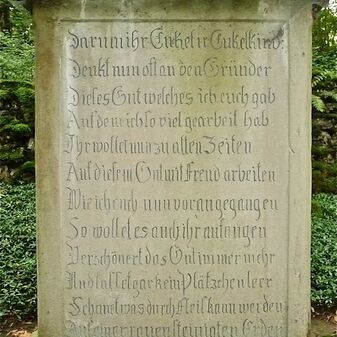 Darum ihr Enkel ir Enkelkind:
Denkt nun oft an den Gründer
Dieses Gut welches ich euch gab
Auf dem ich so viel gearbeit hab
Ihr wollet nun zu allen Zeiten
Auf diesem Gut mit Freud arbeiten
Wie ich euch nun vorangegangen
So wollet es auch ihr anfangen
Verschönert das Gut immer mehr
Und lasset gar kein Plätzchen leer
Schaut was durch Fleis kann werden
Auf einer rauen steinigten Erden